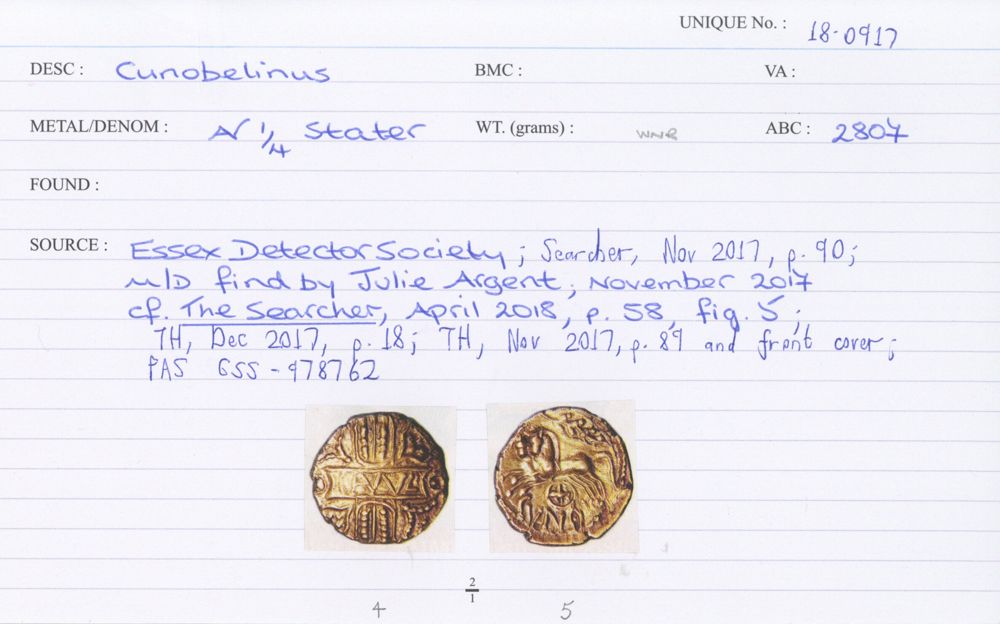 UNIQUE No. : 18-0917
DESC : Cunobelinus BMC : VA :
METAL/DENOM : N 1/4 Stater WT. (grams) : WNR ABC : 2807
FOUND :
SOURCE : Essex Detector Society ; Searcher, Nov 2017, p. 90 ;
M/D find by Julie Argent ; November 2017
cf. The Searcher, April 2018, p. 58, fig. 5 ;
TH, Dec 2017, p. 18; TH, Nov 2017, p. 89 and front cover ;
PAS GSS - 978762
2
1
4 5